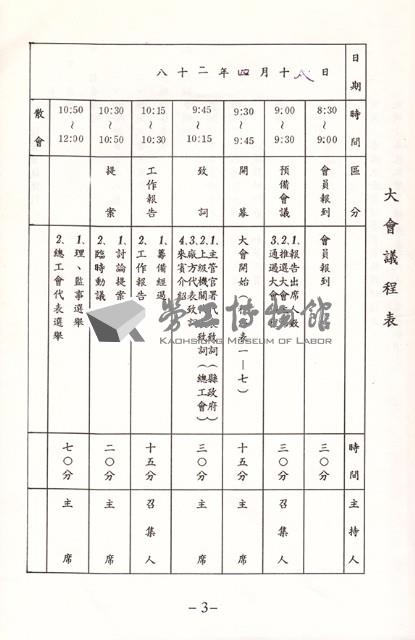 大會議程表
日期
八十二年四月十八日
時間
區分
時間
主持人
8:30
~
9:00
會員報到
會員報到
三〇分
9:00
~
9:30
預備會議
1.報告出席人數
2.推選大會主
3.通過大會
三〇分
召集人
9:30
~
9:45
開幕
大會開始
表一—七)
十五分
主席
9:45
~
10:15
致詞
1.主管官署代表致詞(縣政府)
2.上級機關
致詞(總工會)
3.廠方代表致詞
4.來賓介紹
三〇分
主席
10:15
~
10:30
工作報告
1.籌備經過
2.工作報告
十五分
召集人
10:30
~
10:50
提案
1.討論提案
2.臨時動議
二〇分
主席
10:50
~
12:00
1.理、監事選舉
2.總工會代表選舉
七〇分
主席
散會
勞工博物館
KAOHSIUNG MUSEUM OF LABOR
-3-